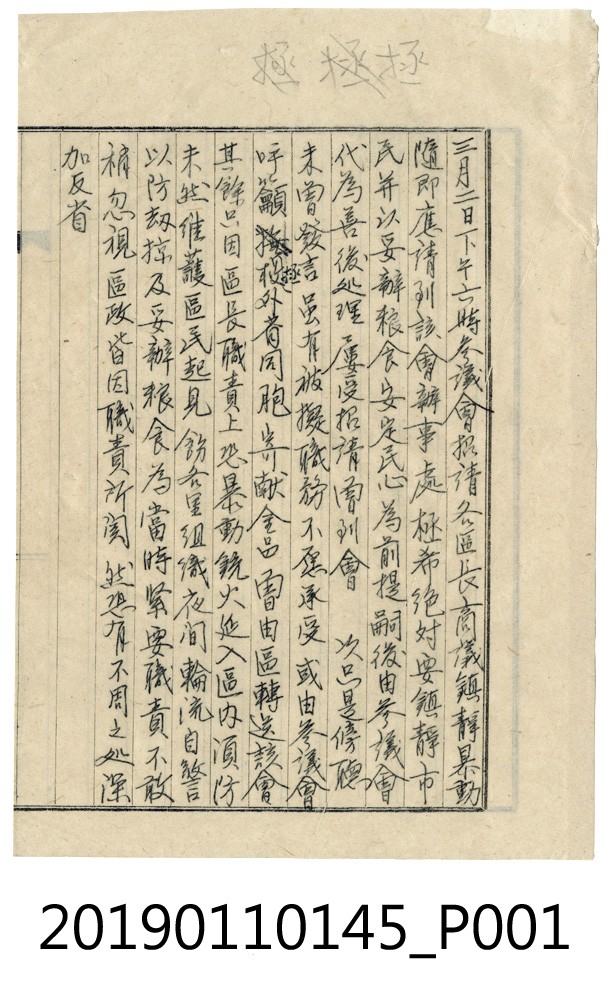 極 極 極
三月二日下午六時參議會招請各區長商議鎮靜暴動
隨即應請到該會辦事處極希絕對要鎮靜市
民并以妥辦粮食安定民心為前提嗣後由參議會
代為善後処理屢受招請曾到會 次只是傍聽
未曾發言虽有被擬職務不應承受或由參議會
呼籲 極外省同胞寄献金品曾由區轉送該會
其餘只因區長職責上恐暴動銃火延入區內須防
未然維護區民起見飭各里組織夜间輪流自警
以防刼掠及妥辦粮食為當時紧要職責不敢
稍忽視區政皆因職責所関然恐有不周之処深
加反省
20190110145_P001